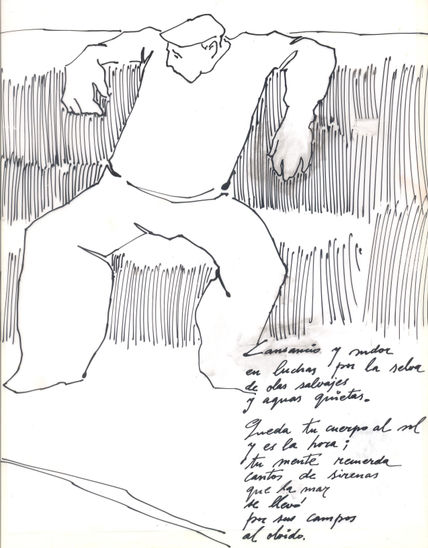 Cansancio y sudor
en luchas por la selva
de olas salvajes
y aguas quietas.
Queda tu cuerpo al sol
y es la hora;
tu mente recuerda
cantos de sirenas
que la mar
se llevó
por sus campos
al olvido.